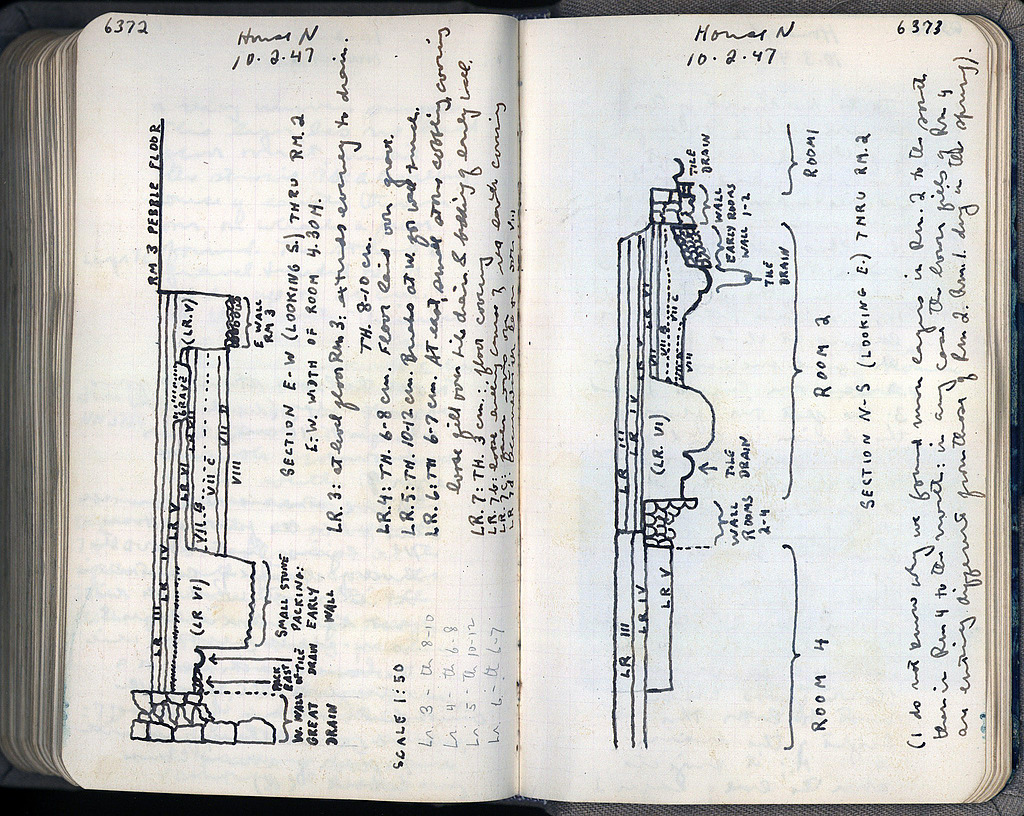 6372
House N
10.2.47
RM 3 PEBBLE FLOOR
LR III
LR IV
LR V
LR VI
LR VII
GRAVE
(LR. V)
VII B
VII C
VII D
VIII
(LR VI)
E WALL
RM 3
W. WALL OF
GREAT
DRAIN
PACK
EAST
TILE
DRAIN
SMALL STONE
PACKING:
EARLY
WALL
SECTION E-W (LOOKING S.) THRU RM. 2
E.W. WIDTH OF ROOM 4.30 M.
SCALE 1:50
LR. 3: at level floor Rm 3: extends every to drain.
TH. 8-10 cm.
LR. 4: TH. 6-8 cm. Floor laid over grave.
LR. 5: TH. 10-12 cm. Breaks at W. go
LR. 6: TH 6-7 cm. At east, small stone covering
loose fill over tile drain & bedding of early wall.
LR. 7: TH. 3 cm.: floor covering
LR. 7b:
LR. 7c:
Lr. 3 - th 8-10
Lr. 4 - th 6-8
Lr. 5 - th 10-12
Lr. 6 - th 6-7
6373
House N
10.2.47
LR III
LR IV
LR V
LR III
LR IV
LR V
LR VI
VII
VII B
VII C
VIII
(LR. VI)
TILE
DRAIN
WALL
ROOMS
1-2
EARLY
WALL
TILE
DRAIN
TILE
DRAIN
WALL
ROOMS
2-4
ROOM 1
ROOM 2
ROOM 4
SECTION N-S (LOOKING E.) THRU RM. 2
(I do not know why we found more layers in Rm. 2 to the south
than in Rm 4 to the north: in any case the lower fills of Rm 4
are entirely different from those of Rm 2. Rm. 1 dug in the spring).